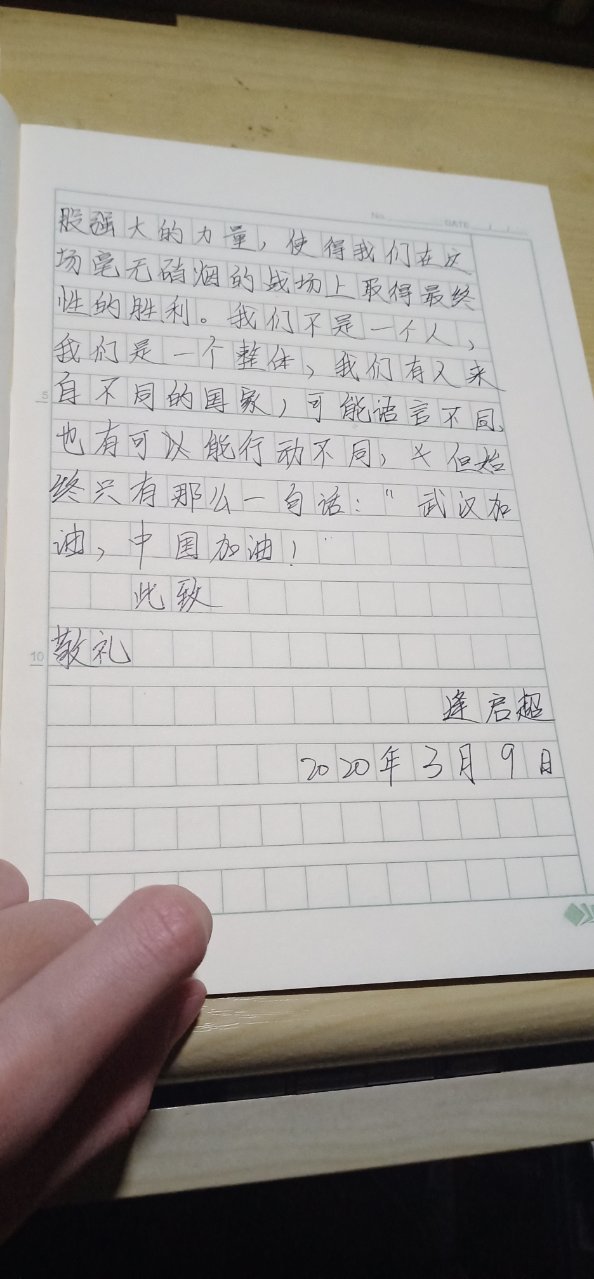 No. DATE / /
股强大的力量，使得我们在这
场毫无硝烟的战场上取得最终
性的胜利。我们不是一个人，
我们是一个整体，我们有人来
5
自不同的国家，可能语言不同，
也有可以能行动不同，但始
终只有那么一句话：“武汉加
油，中国加油！”
此致
10
敬礼
逄启超
2020年3月9日